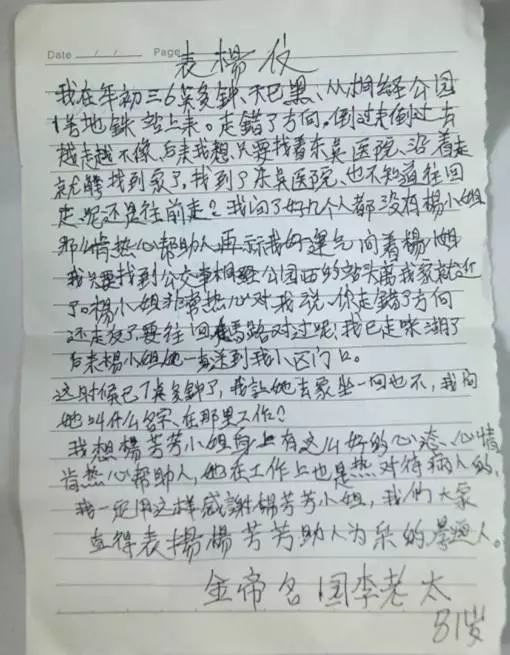 Date / / Page
表楊仪
我在年初三6英多钟、天巴黑、从桐经公园
1号地铁站上来。走错了方向。倒过走倒过去
越走越不像、后来我想、只要找着东吴医院、沿着走
就能找到家了，找到了东吴医院、也不知道往回
走呢还是往前走？我问了好几个人都没有楊小姐
那么情热心帮助人
我只要找到公交車桐经公园西的站头离我家就近
了。楊小姐非常热心对我说、你走错了方向
还走反了、要往回 馬路对过呢、我已走
后来楊小姐她一直送到我小区门口。
这时候已7点多钟了，我説她去家坐一回也不，我问
她叫什么名字、在那里工作？
我想楊芳芳小姐身上有这么好的心态、心情
肯热心帮助人，她在工作上也是热对待病人的，
我一定用这样感謝楊芳芳小姐，我们大家
直得表揚楊芳芳助人为乐的 人。
金帝名国李老太
81岁